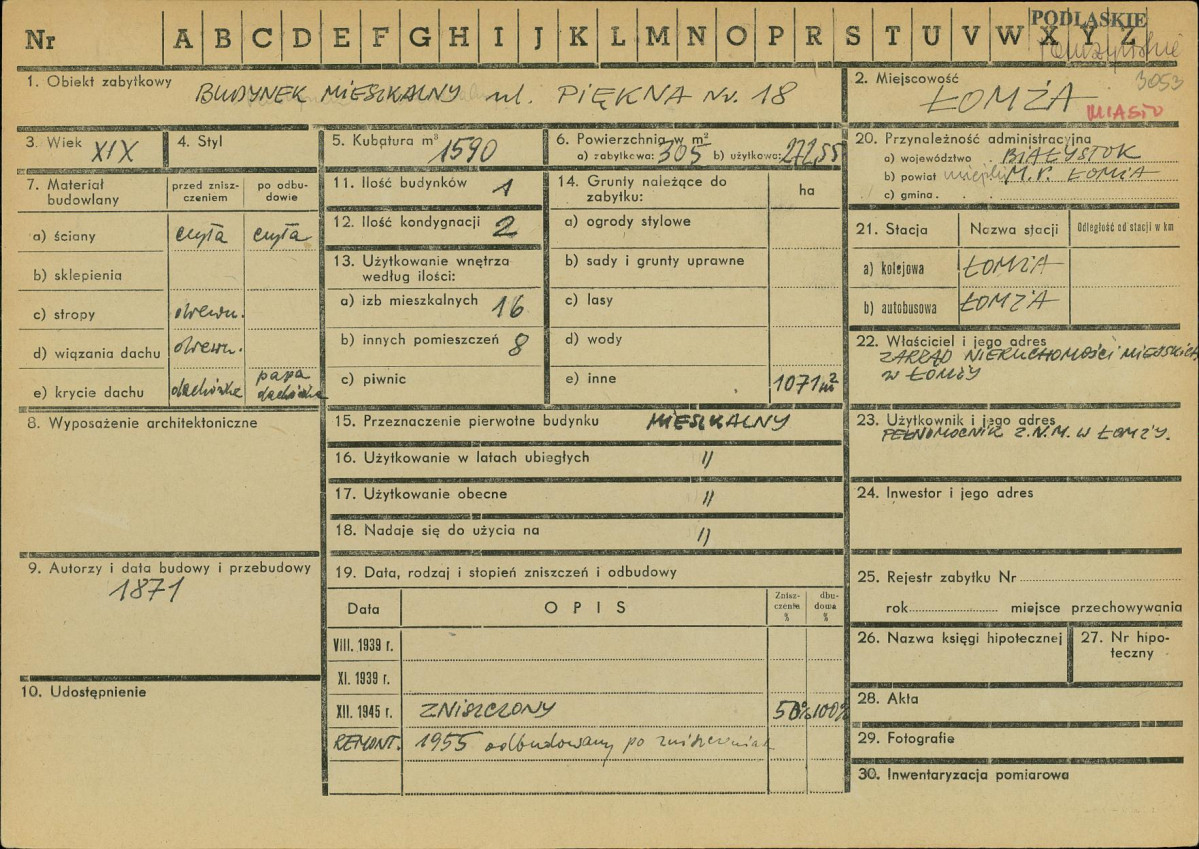 PODLASKIE
Nr A B C D E F G H I J K L M N O P R S T U V W X Y Z
Łomżyńskie
1. Obiekt zabytkowy
BUDYNEK MIESZKALNY ul. PIĘKNA Nr. 18
2. Miejscowość 3053
ŁOMŻA
MIASTO
3. Wiek XIX
4. Styl
5. Kubatura m³ 1590
6. Powierzchnia w m²
a) zabytkowa: 305 b) użytkowa: 272,55
20. Przynależność administracyjna
a) województwo BIAŁYSTOK
b) powiat miejski M. P. ŁOMŻA
c) gmina
7. Materiał budowlany
przed zniszczeniem
po odbudowie
a) ściany cegła cegła
b) sklepienia
c) stropy drewn.
d) wiązania dachu drewn.
e) krycie dachu dachówka papa dachówka
11. Ilość budynków 1
12. Ilość kondygnacji 2
13. Użytkowanie wnętrza
według ilości:
a) izb mieszkalnych 16
b) innych pomieszczeń 8
c) piwnic
14. Grunty należące do
zabytku:
ha
a) ogrody stylowe
b) sady i grunty uprawne
c) lasy
d) wody
e) inne 1071 m²
21. Stacja Nazwa stacji Odległość od stacji w km
a) kolejowa ŁOMŻA
b) autobusowa ŁOMŻA
22. Właściciel i jego adres
ZARZĄD NIERUCHOMOŚCI MIEJSKICH
W ŁOMŻY
8. Wyposażenie architektoniczne
15. Przeznaczenie pierwotne budynku MIESZKALNY
16. Użytkowanie w latach ubiegłych "
17. Użytkowanie obecne "
18. Nadaje się do użycia na "
23. Użytkownik i jego adres
PEŁNOMOCNIK Z.N.M. W ŁOMŻY.
24. Inwestor i jego adres
9. Autorzy i data budowy i przebudowy
1871
10. Udostępnienie
19. Data, rodzaj i stopień zniszczeń i odbudowy
Data OPIS Zniszczenie % dbudowa %
VIII. 1939 r.
XI. 1939 r.
XII. 1945 r. ZNISZCZONY 50% 100%
REMONT. 1955 odbudowany po zniszczeniach
25. Rejestr zabytku Nr
rok miejsce przechowywania
26. Nazwa księgi hipotecznej
27. Nr hipoteczny
28. Akta
29. Fotografie
30. Inwentaryzacja pomiarowa